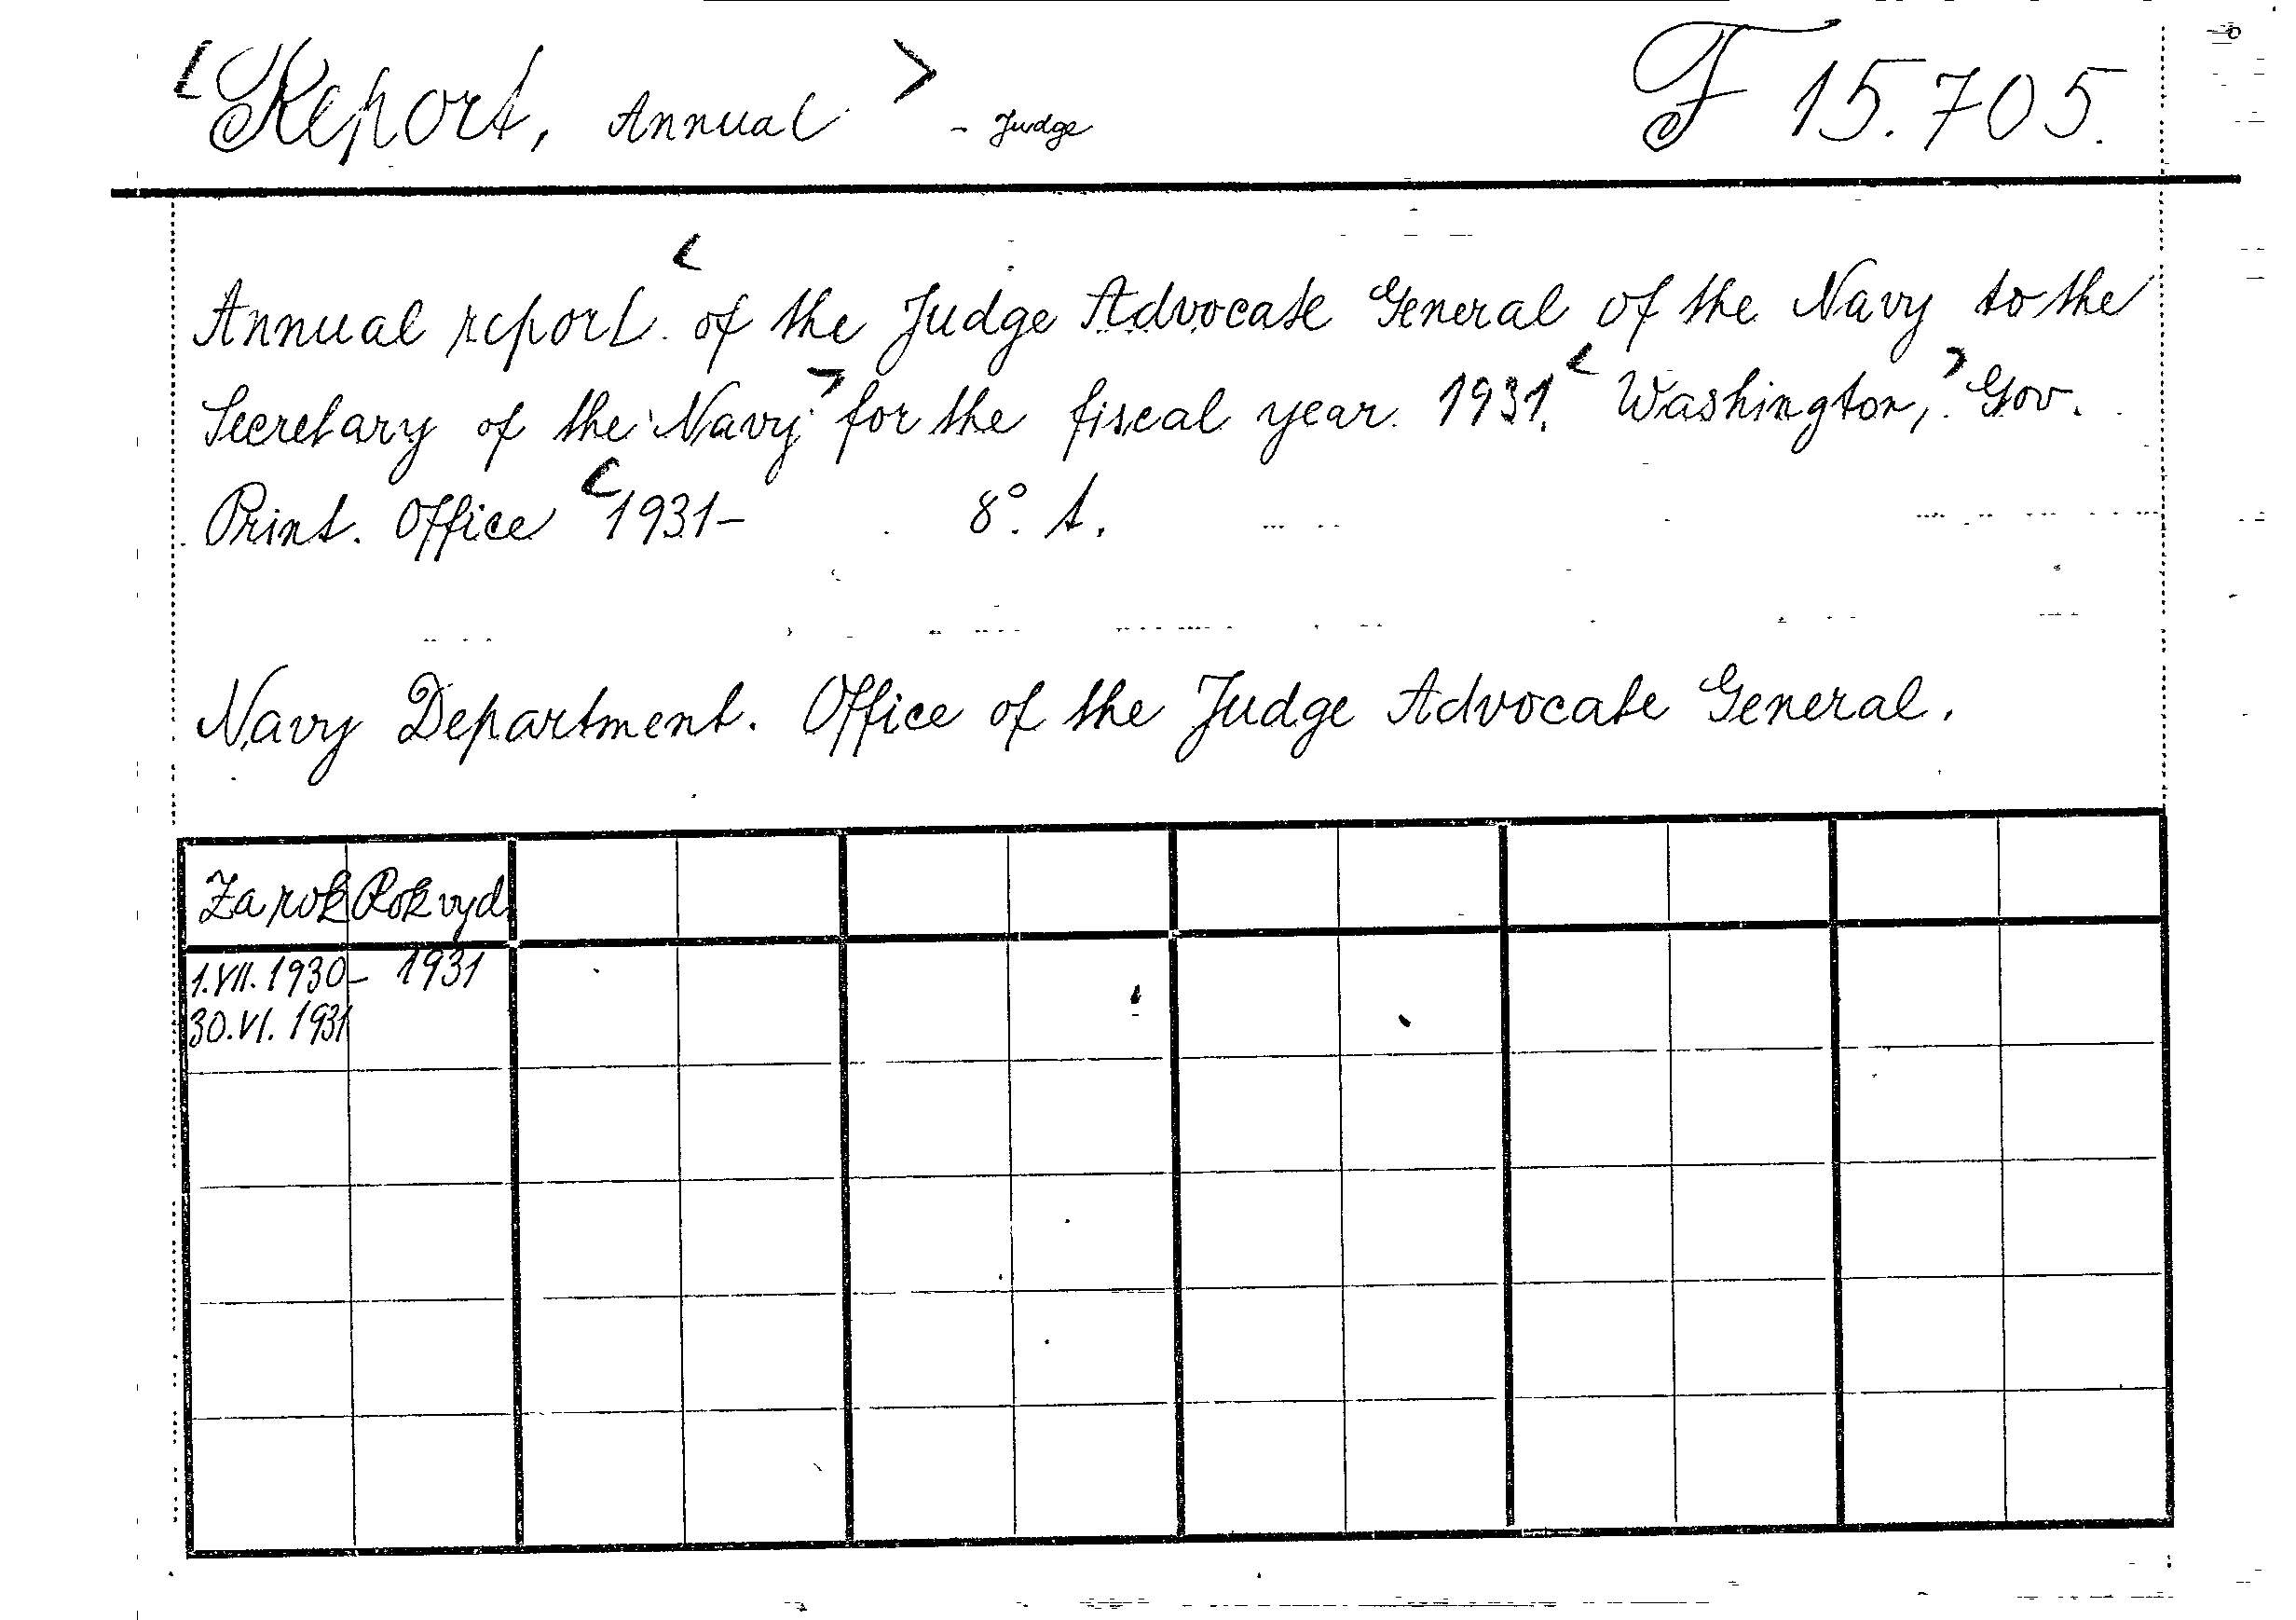 <Report, Annual> - Judge F 15.705.
Annual report <of the Judge Advocate General of the Navy to the
Secretary of the Navy> for the fiscal year 1931. <Washington,> Gov.
Print. Office <1931- 8°. t.
Navy Department. Office of the Judge Advocate General.
Za rok Rok vyd.
1.VII.1930- 1931
30.VI.1931